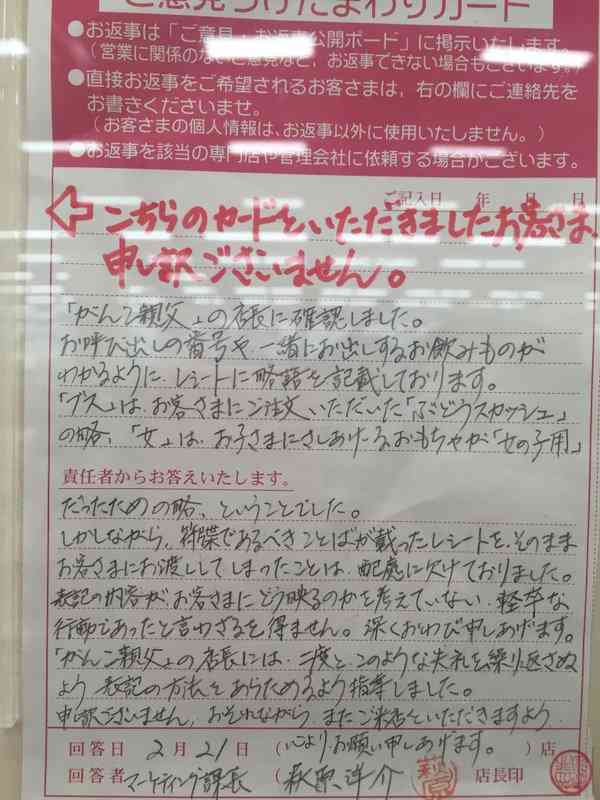 ご意見うけたまわりカード
●お返事は「ご意見・お返事公開ボード」に掲示いたします。
（営業に関係のないご意見など、お返事できない場合もございます。）
●直接お返事をご希望されるお客さまは、右の欄にご連絡先を
お書きくださいませ。
（お客さまの個人情報は、お返事以外に使用いたしません。）
●お返事を該当の専門店や管理会社に依頼する場合がございます。
ご記入日 年 月 日
⇦こちらのカードをいただきましたお客さま、
申し訳ございません。
「がんこ親父」の店長に確認しました。
お呼び出しの番号や一緒にお出しするお飲みものが
わかるように、レシートに略語を記載しております。
「ブス」は、お客さまにご注文いただいた「ぶどうスカッシュ」
の略、「女」は、お子さまにさしあげるおもちゃが「女の子用」
責任者からお答えいたします。
だったための略、ということでした。
しかしながら、符牒であるべきことばが載ったレシートを、そのまま
お客さまにお渡ししてしまったことは、配慮に欠けておりました。
表記の内容が、お客さまにどう映るのかを考えていない、軽卒な
行動であったと言わざるを得ません。深くおわび申しあげます。
「がんこ親父」の店長には、二度とこのような失礼を繰り返さぬ
よう 表記の方法をあらためるよう指導しました。
申し訳ございません。おそれながら、またご来店をいただきますよう、
回答日 2月21日 （心よりお願い申しあげます。） 店
回答者 マーケティング課長 （萩原洋介 萩原 店長印